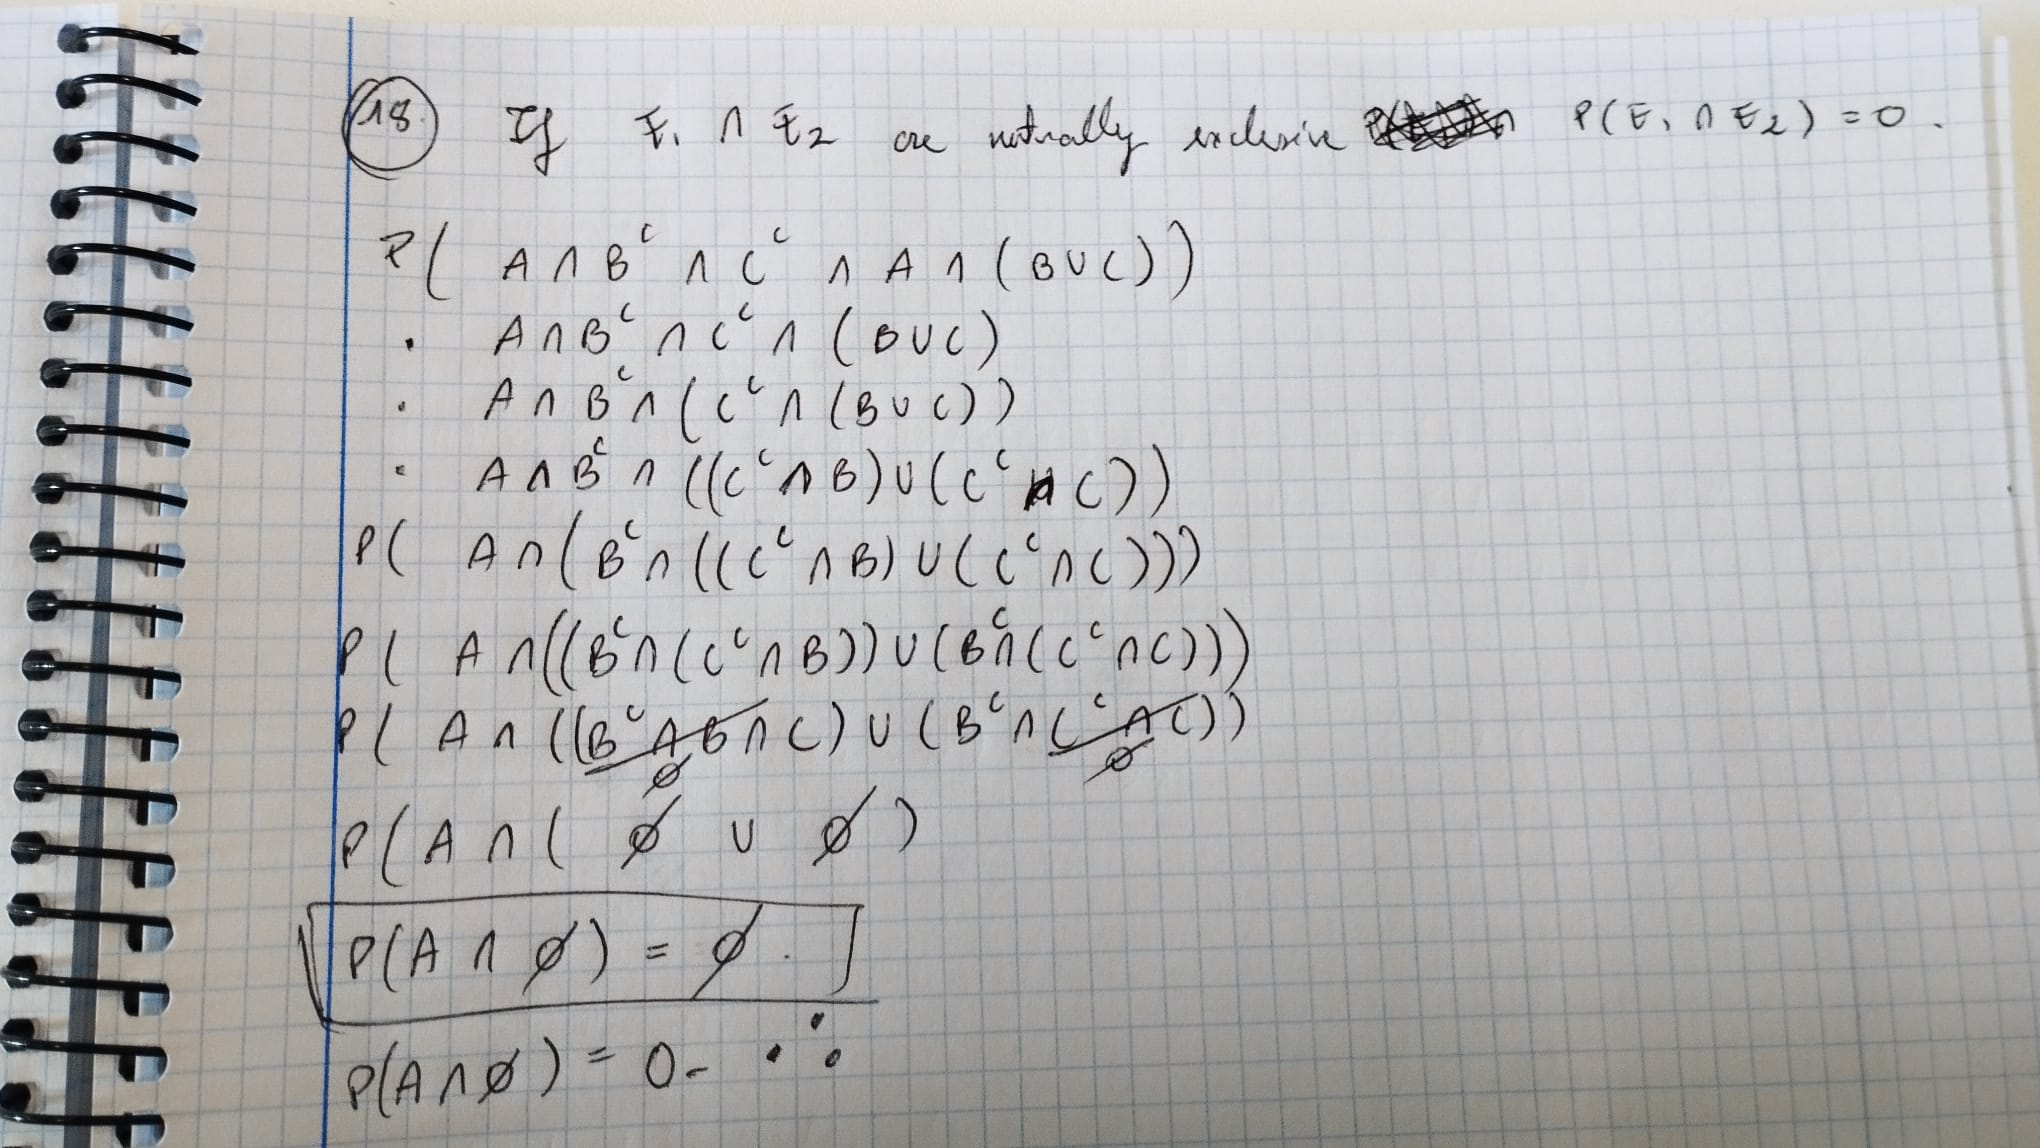 18. If E₁ ∩ E₂ are mutually exclusive P(E₁ ∩ E₂) = 0.
P( A ∩ Bᶜ ∩ Cᶜ ∩ A ∩ (B ∪ C))
. A ∩ Bᶜ ∩ Cᶜ ∩ (B ∪ C)
. A ∩ Bᶜ ∩ (Cᶜ ∩ (B ∪ C))
. A ∩ Bᶜ ∩ ((Cᶜ ∩ B) ∪ (Cᶜ ∩ C))
P( A ∩ (Bᶜ ∩ ((Cᶜ ∩ B) ∪ (Cᶜ ∩ C)))
P( A ∩ ((Bᶜ ∩ (Cᶜ ∩ B)) ∪ (Bᶜ ∩ (Cᶜ ∩ C)))
P( A ∩ ((Bᶜ ∩ B ∩ C) ∪ (Bᶜ ∩ Cᶜ ∩ C))
∅ ∅
P(A ∩ ( ∅ ∪ ∅ )
P(A ∩ ∅) = ∅.
P(A ∩ ∅) = 0- ∴